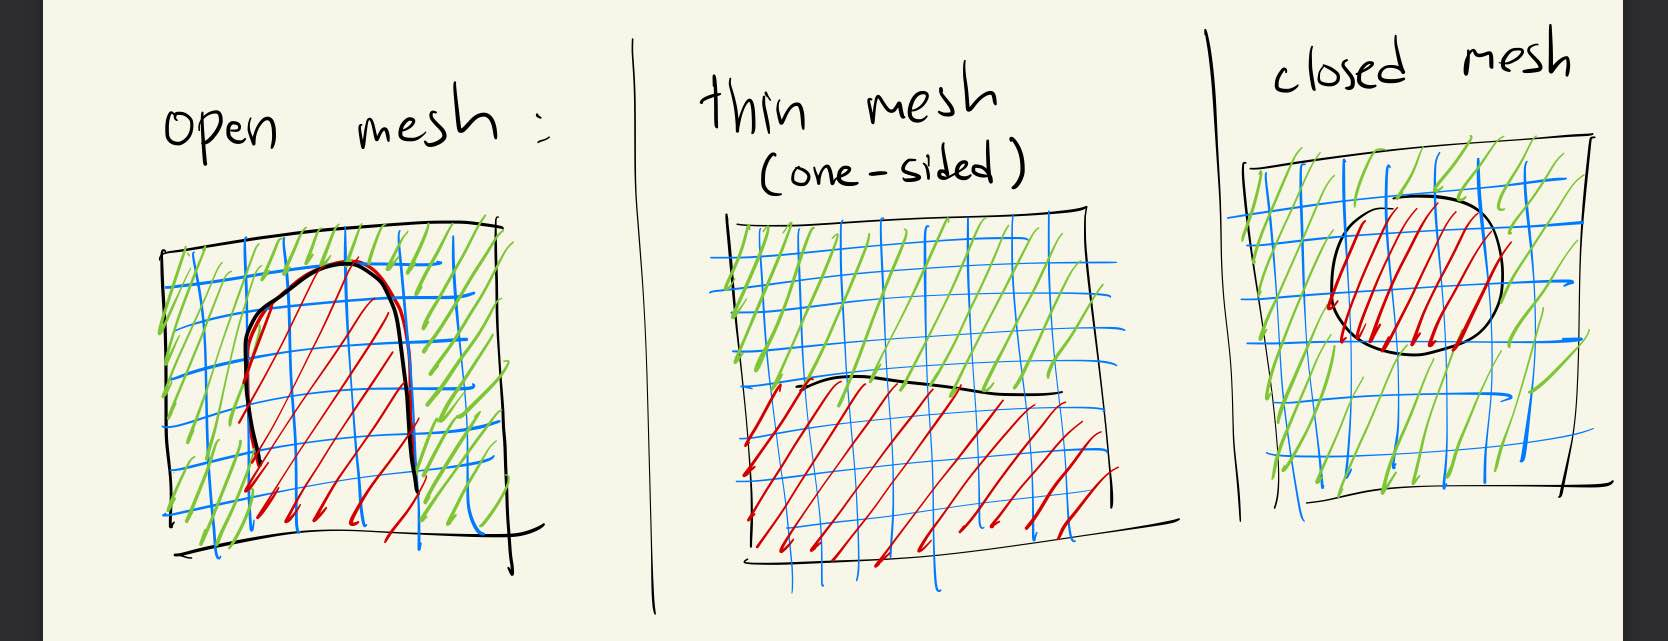 open mesh :
thin mesh
(one-sided)
closed mesh